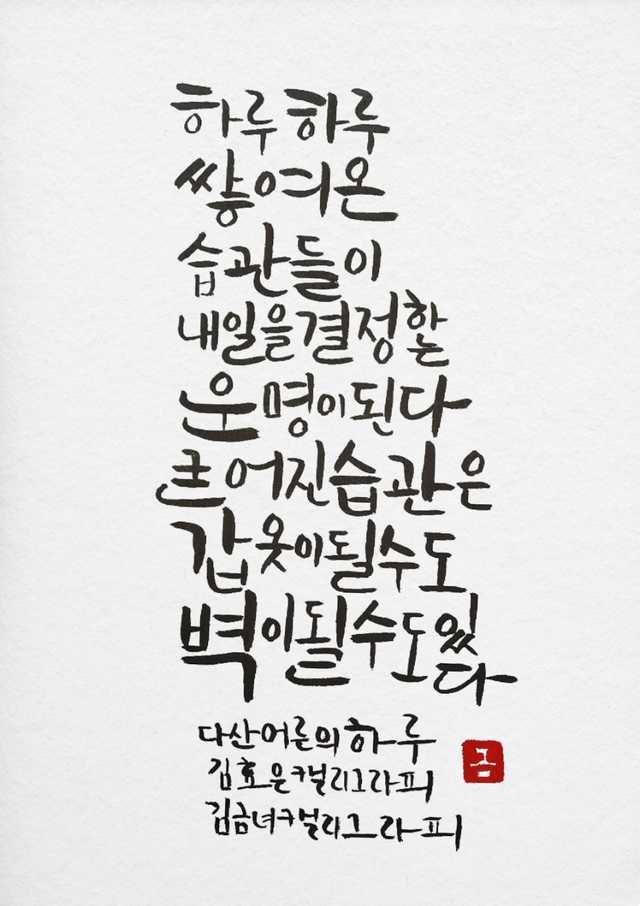 하루하루
쌓여온
습관들이
내일을결정하는
운명이된다
습관은
갑옷이될수도
벽이될수도있다
다산어른의하루
김효은캘리그라피
김금녀캘리그라피
금